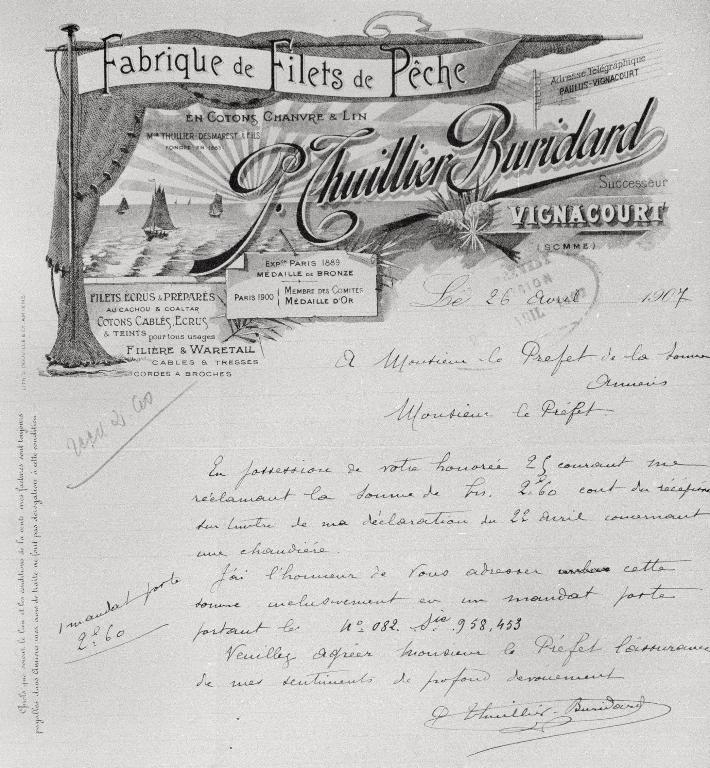 Fabrique de Filets de Pêche
Adresse Télégraphique
PAULUS-VIGNACOURT
EN COTONS, CHANVRE & LIN
Mon THUILLIER-DESMAREST & FILS
FONDÉE EN 1863
P. Thuillier Buridard
Successeur
VIGNACOURT
(SOMME)
EXPon PARIS 1889
MÉDAILLE DE BRONZE
PARIS 1900 MEMBRE DES COMITÉS
MÉDAILLE D'OR
FILETS ÉCRUS & PRÉPARÉS
AU CACHOU & COALTAR
COTONS CABLÉS, ÉCRUS
& TEINTS pour tous usages
FILIÈRE & WARETAIL
CABLES & TRESSES
CORDES A BROCHES
Le 26 avril 1907
A Monsieur le Prefet de la Somme
Amiens
Monsieur le Préfet.
En possession de votre honorée 25 courant me
réclamant la somme de frs. 2.60 cout du récépissé
sur timbre de ma déclaration du 22 avril concernant
une chaudière.
J'ai l'honneur de vous adresser cette
somme inclusivement en un mandat poste
portant le No 082. Sie 958,453
Veuillez agréer monsieur le Préfet l'assurance
de mes sentiments de profond dévouement
P Thuillier-Buridard
1 mandat poste
2f.60
Quels que soient le lieu et les conditions de la vente mes factures sont toujours
payables dans Amiens mes avis de traite ne font pas dérogation à cette condition